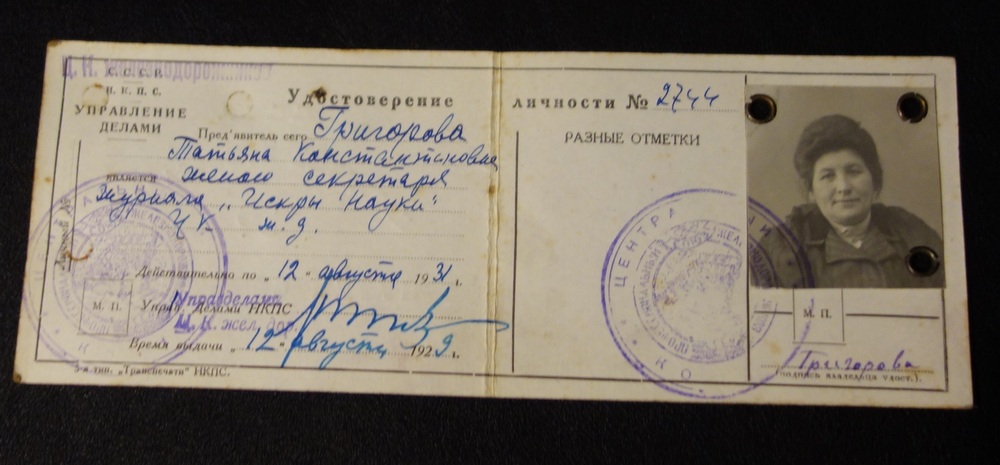 Ц. К. Железнодорожников
С. С. С. Р.
Н. К. П. С.
УПРАВЛЕНИЕ
ДЕЛАМИ
Удостоверение
Пред'явитель сего Григорова
Татьяна Константиновна
является женою секретаря
журнала „Искры Науки"
ЦК ж. д.
Действительно по „12" августа 1931 г.
М. П.
Управ. Делами НКПС
Управделами
Ц. К. жел. дор.
Время выдачи „12" августа 1929 г.
3-я тип. „Транспечати" НКПС.
ЛИЧНОСТИ № 2744
РАЗНЫЕ ОТМЕТКИ
ЦЕНТРА
М. П.
Григорова
(подпись владельца удост.).